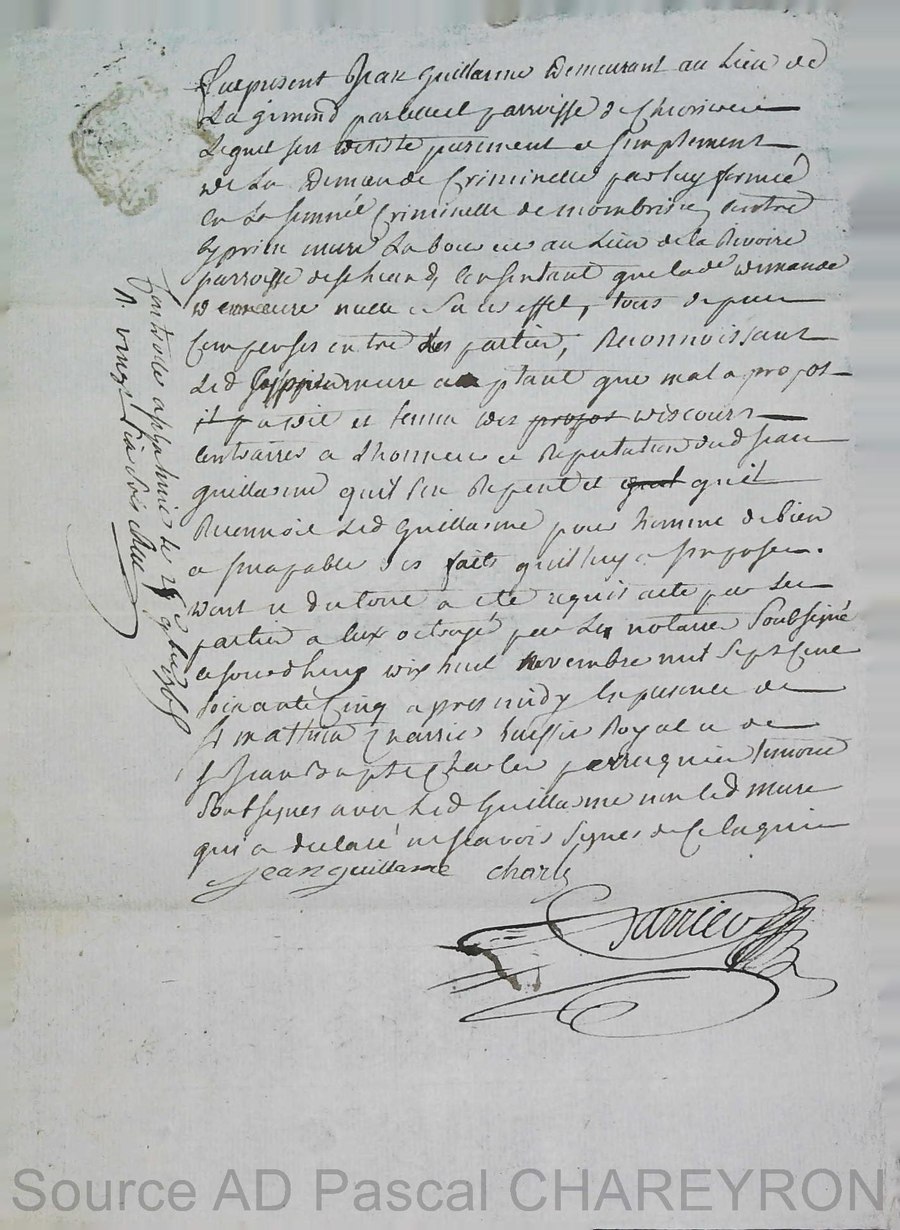 fut present Jean Guillarme demeurant au Lieu de
La gimond parroisse de
Lequel sest desisté purement et simplement
de La demande Criminelle par luy formée
en La sennéé Criminelle de mombrison, contre
Cyprien mure Laboureur au Lieu de la Revoire
parroisse de consentant que lad.e demande
demeure nulle et sans effet, tous depens
Compensés entre Les parties, Reconnoissant
Led mure acceptant que mal a propos
il a dit et tenu des propos discours
contraires a Lhonneur et Reputation dud Jean
guillarme quil sen Repent et quil
Reconnoit Led Guillarme pour homme de bien
incapable des faits quil luy a
dont et du tout a eté requis acte par Les
parties a Eux octroyé par Le notaire soubsigné
cejourdhuy dix huit novembre mil sept cent
soixante Cinq apres midy En presence de
sr mathieu huissier Royal et de
sr Jean Bapte Charles perruquier temoins
soubsignés avec Led Guillarme non led mure
qui a declaré ne scavoir signer de ce Requis
Jean guillarme charles
Controllé a le 28 9bre 1765
R. vingt six sols
Source AD Pascal CHAREYRON